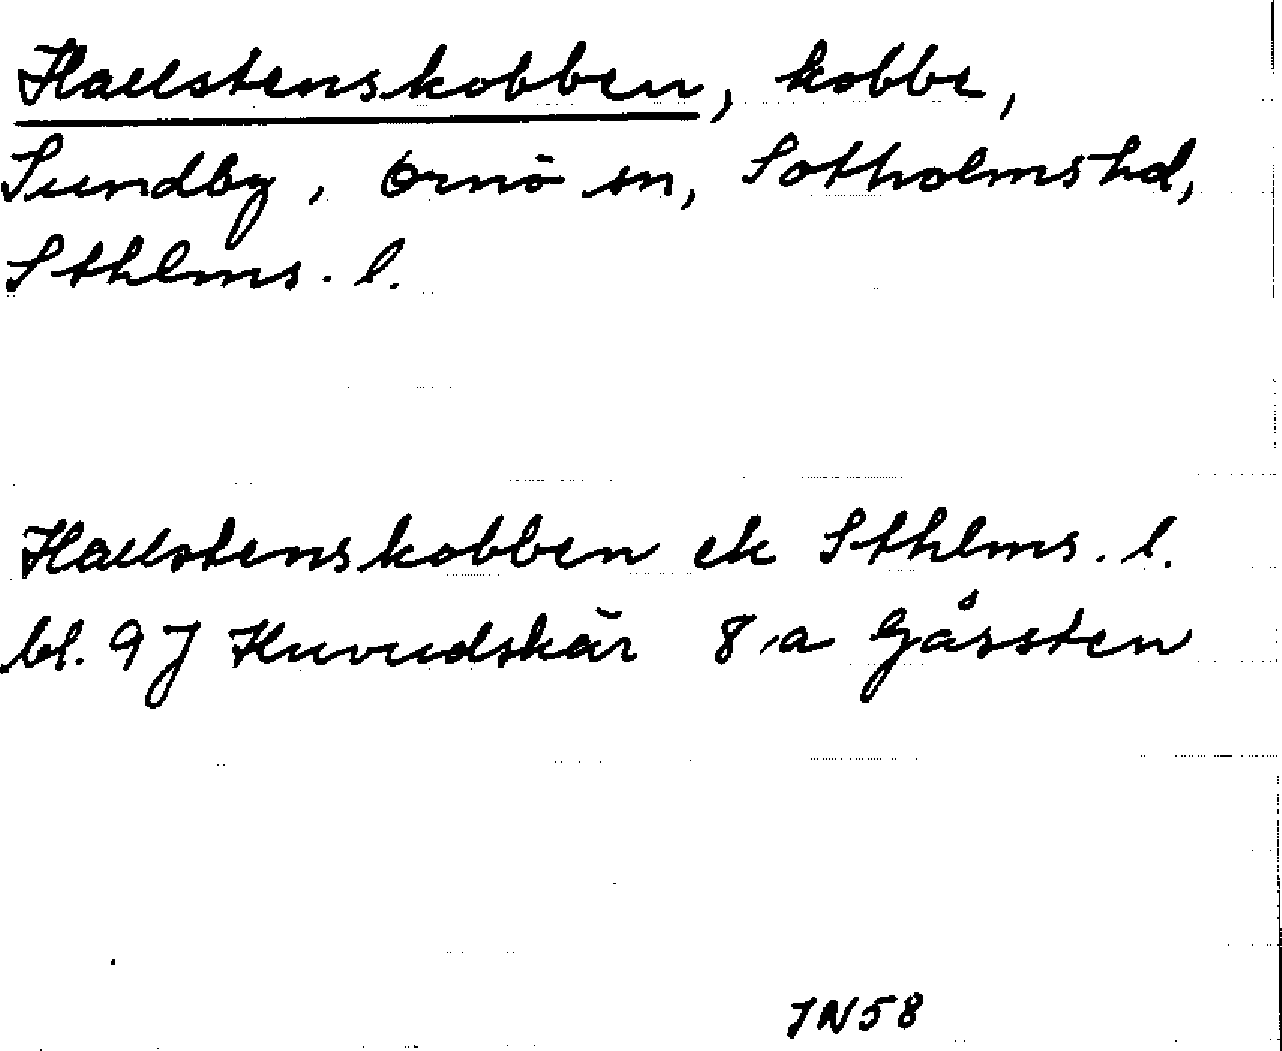 Hallstenskobben, kobbe,
Sundby, Ornö sn, Sotholms hd,
Sthlms. l.
Hallstenskobben ek Sthlms. l.
bl. 9J Huvudskär 8 a Gåssten
JN58